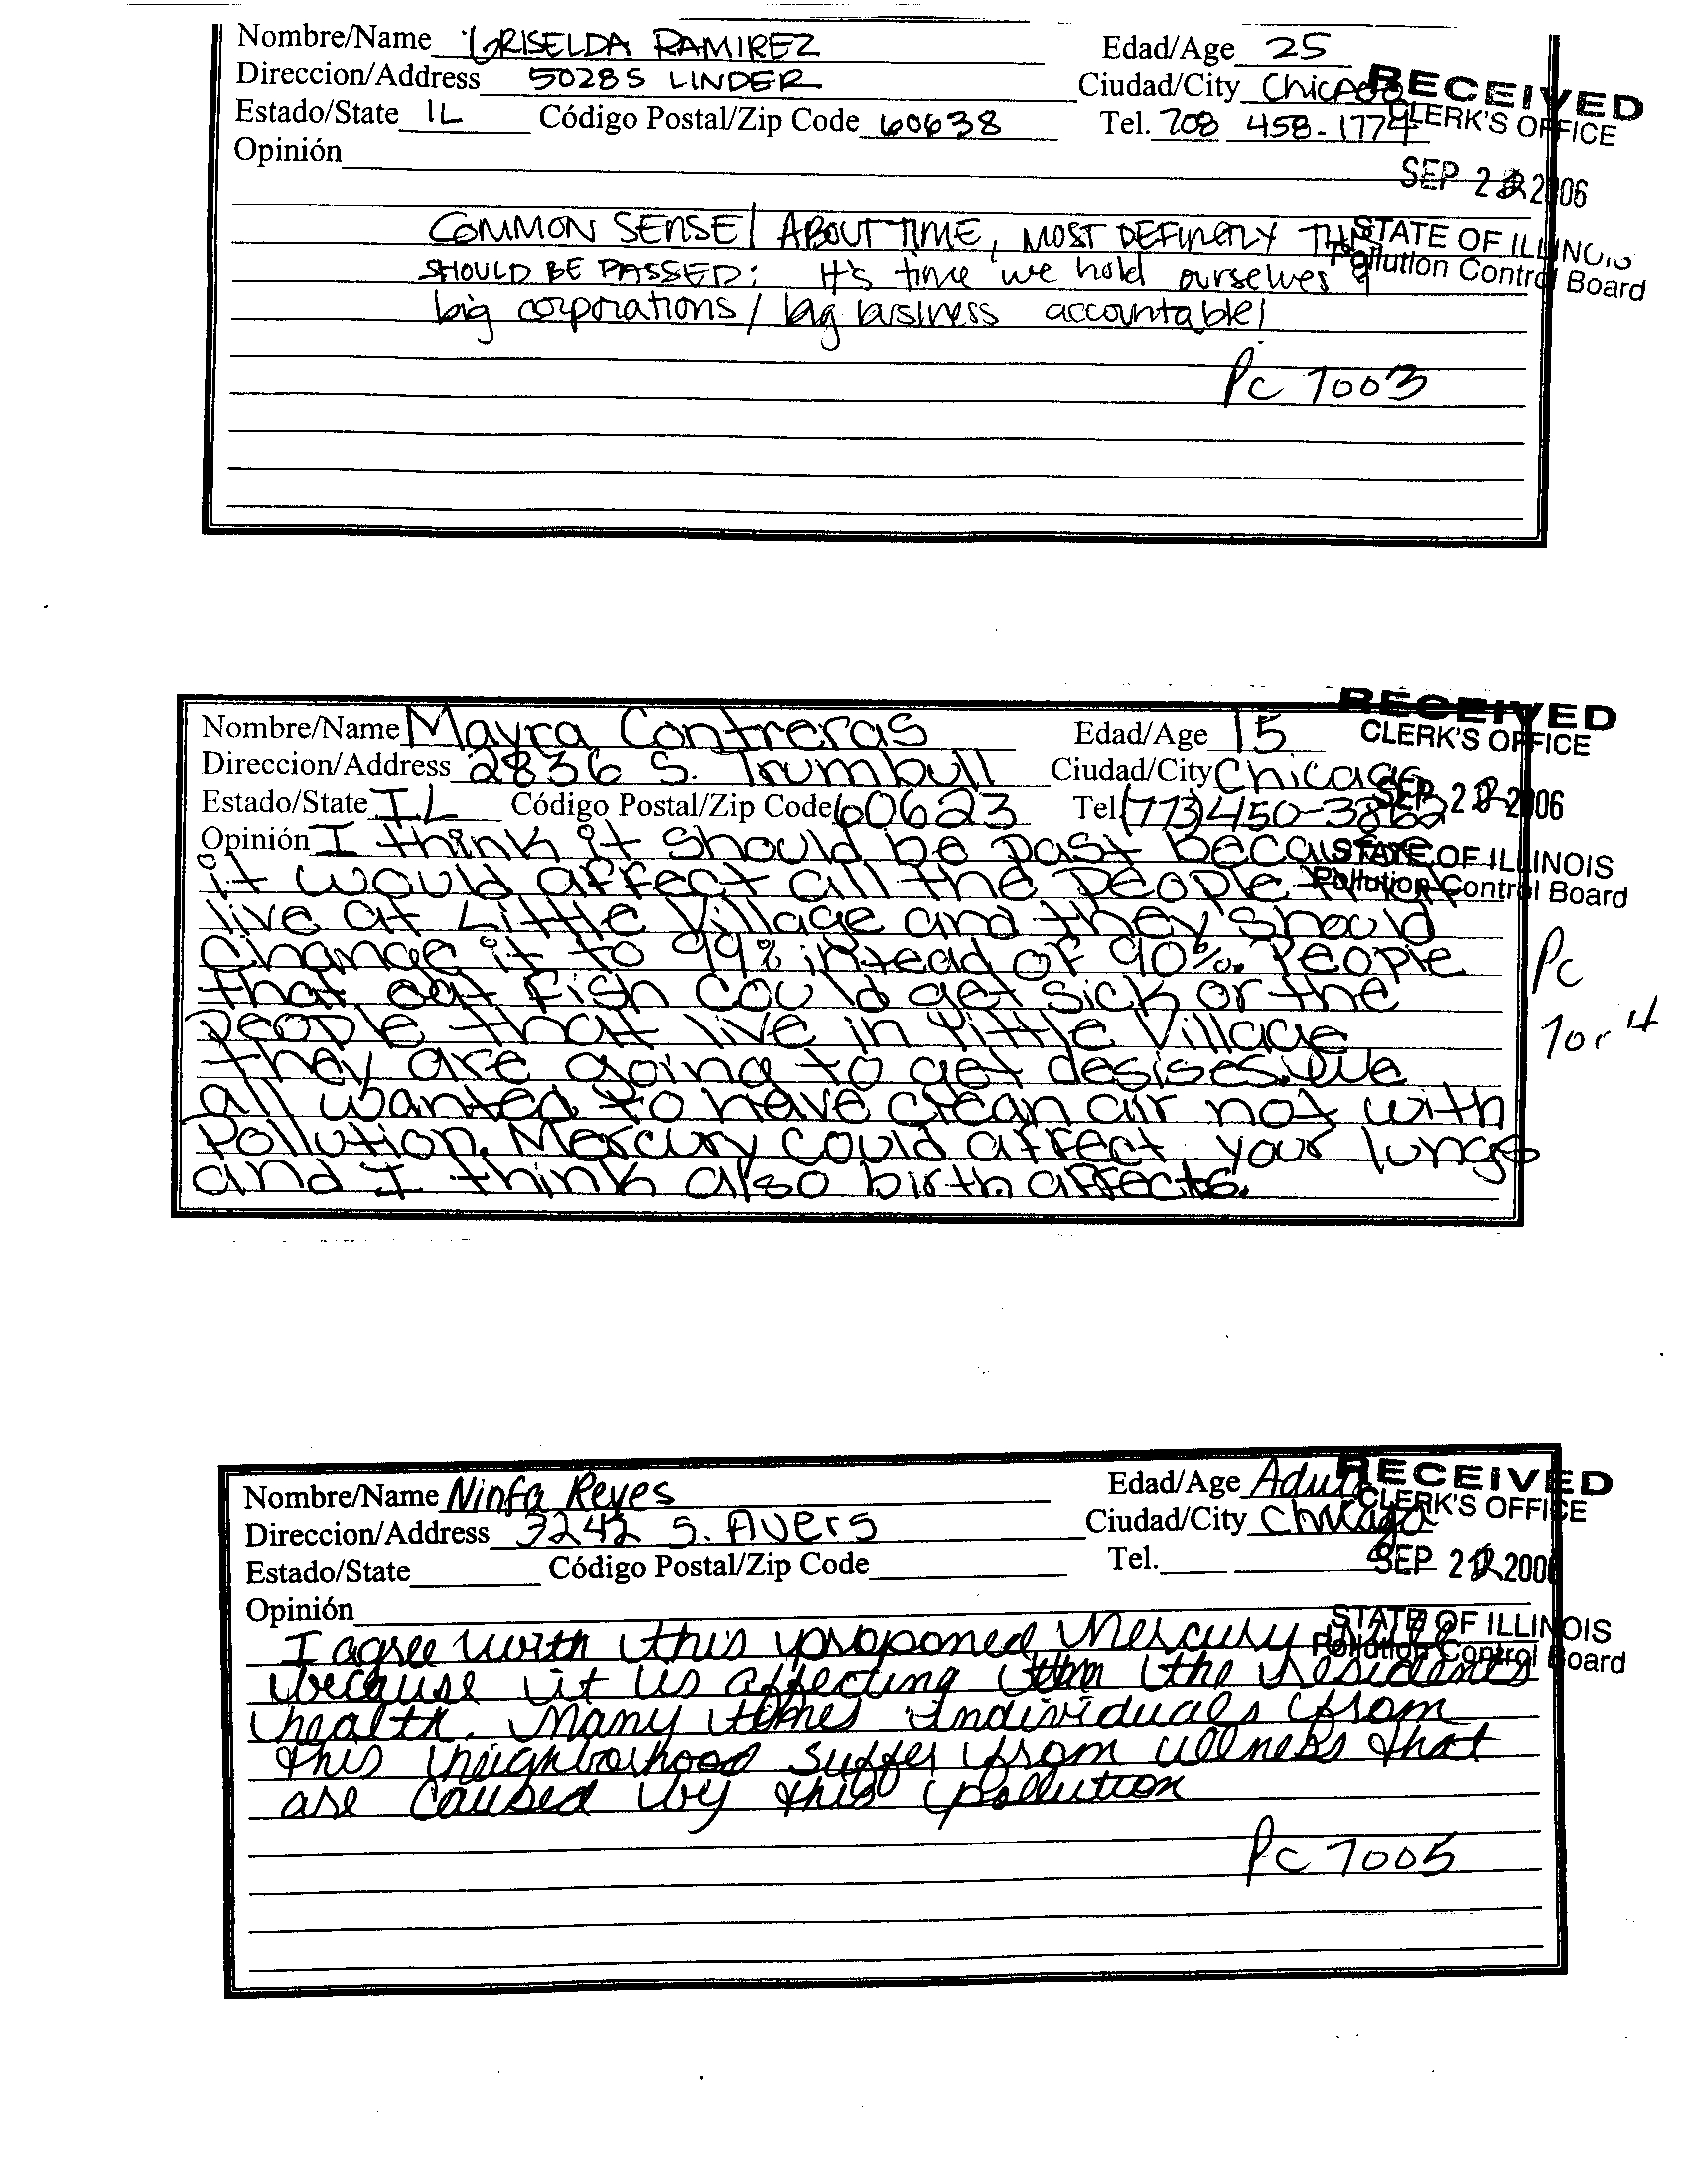 Nombre/Name GRISELDA RAMIREZ Edad/Age 25
Direccion/Address 5028 S LINDER Ciudad/City Chicago
RECEIVED
CLERK'S OFFICE
Estado/State IL Código Postal/Zip Code 60638 Tel. 708 458-1774
Opinión
SEP 22 2006
STATE OF ILLINOIS
Pollution Control Board
COMMON SENSE! ABOUT TIME, MOST DEFINETLY THIS
SHOULD BE PASSED: It's time we hold ourselves &
big corporations / big business accountable!
Pc 7003
RECEIVED
CLERK'S OFFICE
Nombre/Name Mayra Contreras Edad/Age 15
Direccion/Address 2836 S. Trumbull Ciudad/City Chicago
SEP 22 2006
Estado/State IL Código Postal/Zip Code 60623 Tel. (773) 450-3862
STATE OF ILLINOIS
Pollution Control Board
Opinión I think it should be past because
it would affect all the people that
live at Little Village and they should
change it to 99% intead of 90%. People
that eat fish could get sick or the
people that live in little Village
they are going to get desises. We
all wanted to have clean air not with
Pollution. Mercury could affect your lungs
and I think also birth affects.
Pc
7004
Nombre/Name Ninfa Reyes Edad/Age Adult
RECEIVED
CLERK'S OFFICE
Direccion/Address 3242 S. Avers Ciudad/City Chicago
Estado/State Código Postal/Zip Code Tel.
SEP 22 2006
Opinión
STATE OF ILLINOIS
Pollution Control Board
I agree with this proponed Mercury rule
because it is affecting the residents
health. Many times individuals from
this neighborhood suffer from illness that
are caused by this pollution
Pc 7005